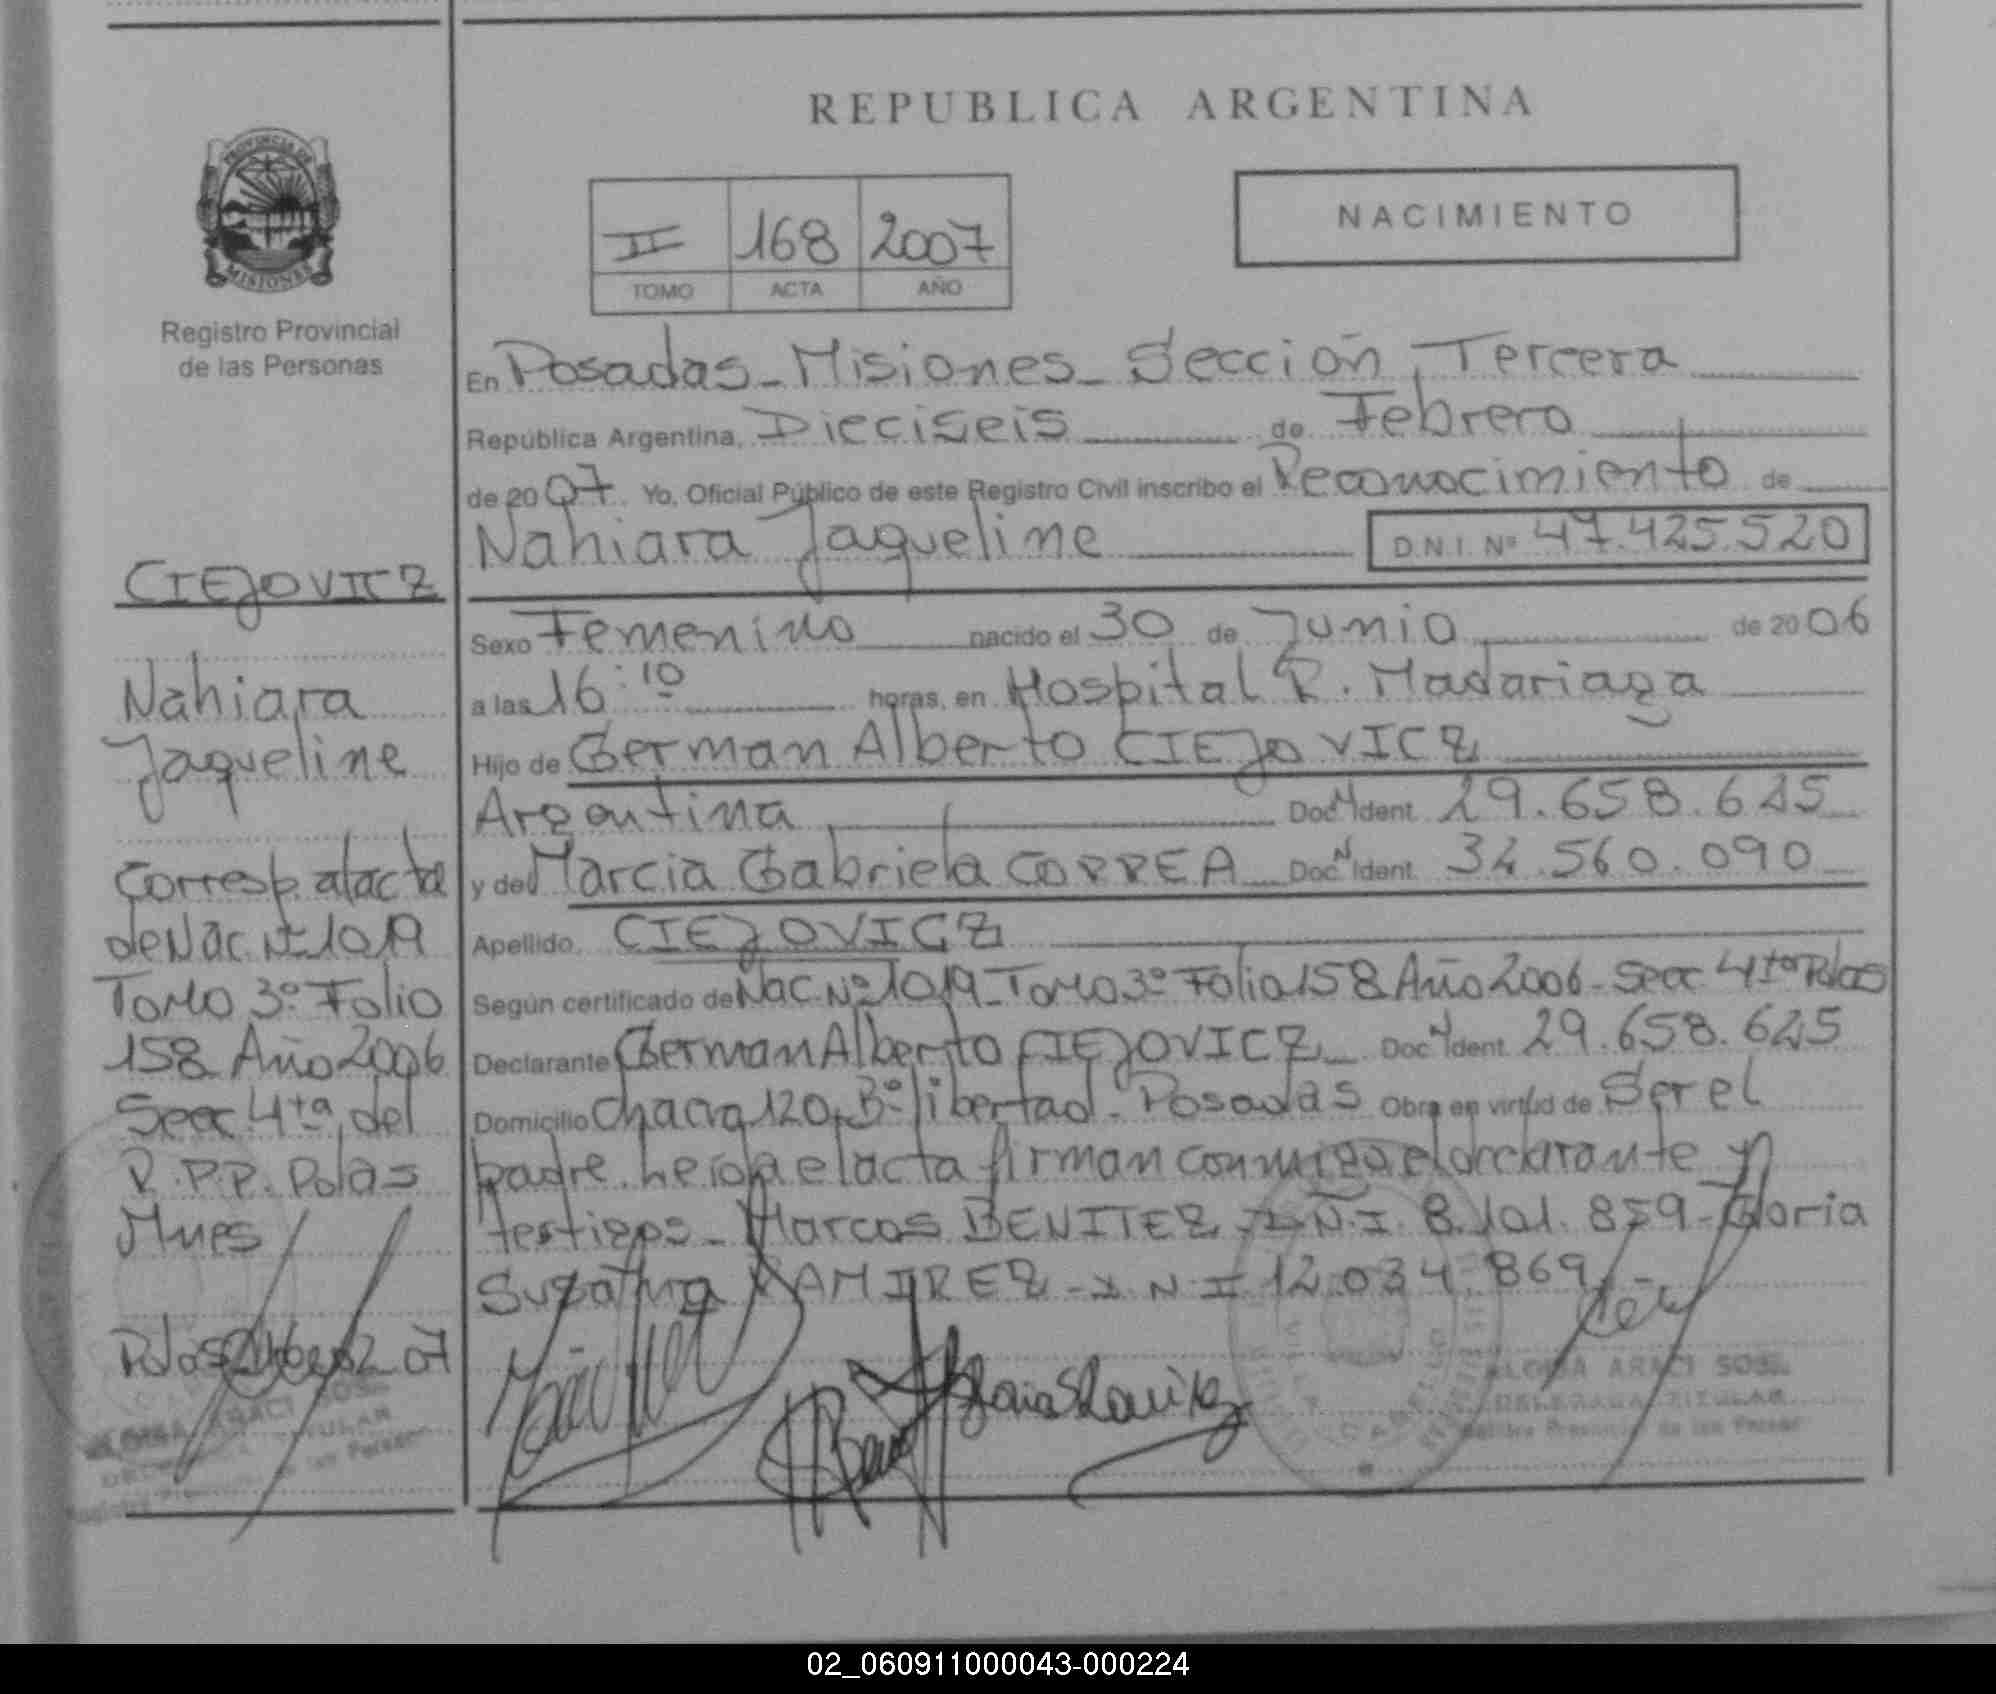 REPUBLICA ARGENTINA
PROVINCIA DE
MISIONES
Registro Provincial
de las Personas
II 168 2007
TOMO ACTA AÑO
NACIMIENTO
En Posadas - Misiones - Sección Tercera
República Argentina, Dieciseis de Febrero
de 2007 Yo, Oficial Público de este Registro Civil inscribo el Reconocimiento de
Nahiara Jaqueline D.N.I. Nº 47.425.520
Sexo Femenino nacido el 30 de Junio de 2006
a las 16:10 horas, en Hospital R. Madariaga
Hijo de German Alberto CIEJOVICZ
Argentina Doc. N Ident. 29.658.625
y de Marcia Gabriela CORREA Doc. N Ident. 34.560.090
Apellido CIEJOVICZ
Según certificado de Nac. Nº 1019 - Tomo 3º Folio 158 Año 2006 - Secc 4ta Pdas
Declarante German Alberto CIEJOVICZ Doc. N Ident. 29.658.625
Domicilio chacra 120, Bº libertad - Posadas Obra en virtud de Ser el
padre. leida el acta firman conmigo el declarante y
testigos - Marcos BENITEZ D.N.I. 8.101.859 - Gloria
Susana RAMIREZ - D.N.I 12.034.869
CIEJOVICZ
Nahiara
Jaqueline
Corresp. al acta
de Nac. Nº 1019
Tomo 3º Folio
158 Año 2006
Secc 4ta del
R.P.P. Pdas
Mnes
Pdas 07
ARACI SOS
TITULAR
ARACI SOS
DELEGADA TITULAR
02_060911000043-000224